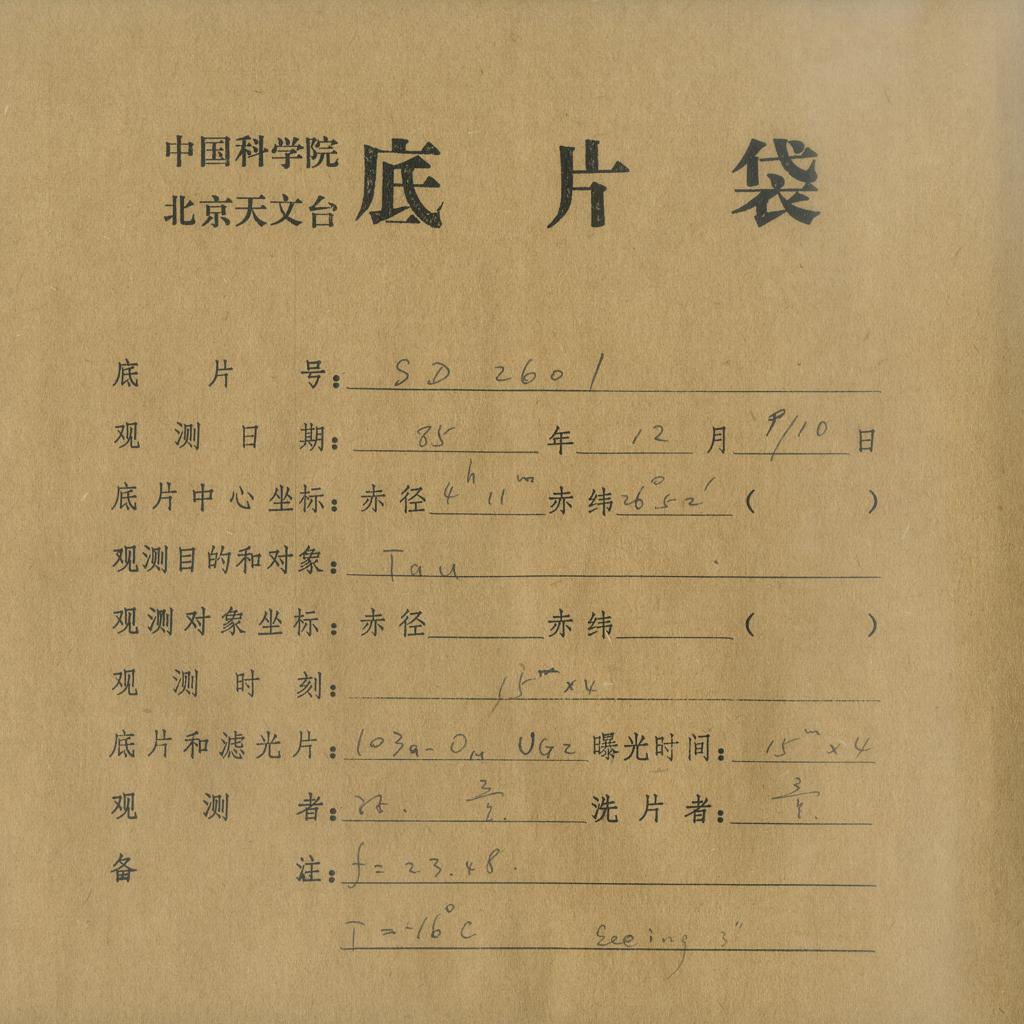 中国科学院
北京天文台
底片袋
底片号: SD 2601
观测日期: 85 年 12 月 9/10 日
底片中心坐标: 赤径 4ʰ 11ᵐ 赤纬 26°52′ ( )
观测目的和对象: Tau
观测对象坐标: 赤径 赤纬 ( )
观测时刻: 15ᵐ×4
底片和滤光片: 103a-O UG2 曝光时间: 15ᵐ×4
观测者: 洗片者:
备注: f=23.48.
T=-16°C Seeing 3"